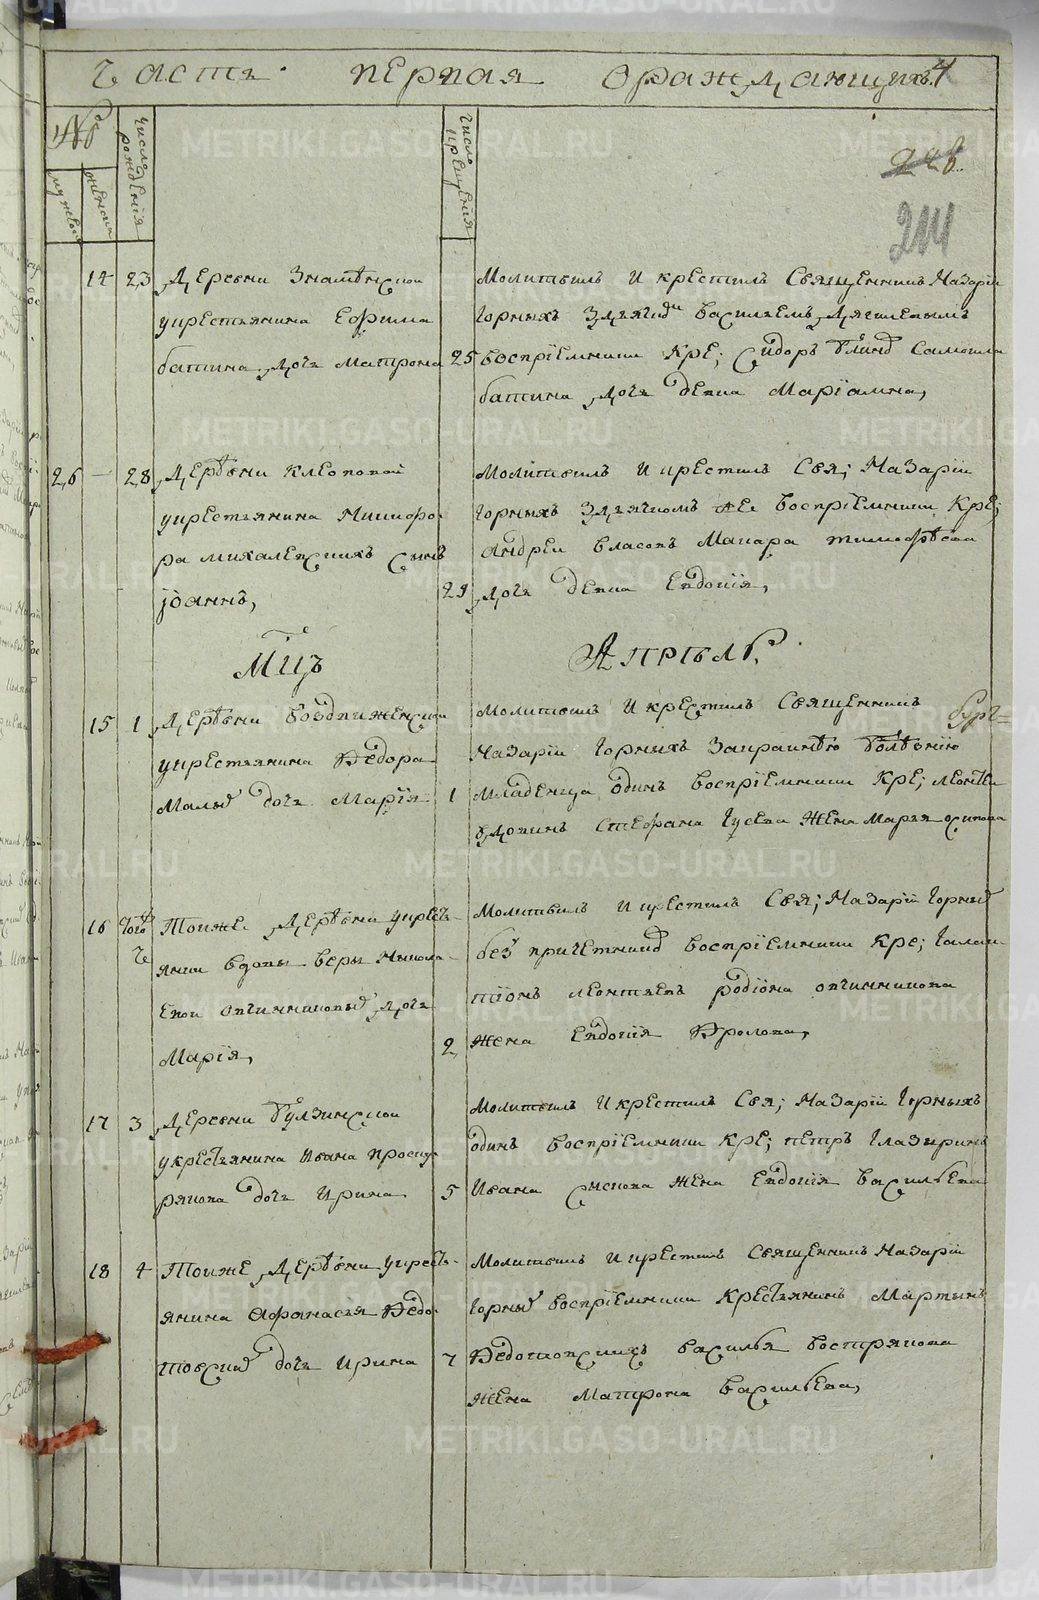 Часть первая ораждающихъ 4
№
мужеска
женска
число рождения
число крещения
226
211
14 23 Деревни Знаменской
укрестьянина Ефима
батина дочь Матрона 25
Молитвилъ и крестилъ Священникъ Назарiй
Горныхъ Здьячкомъ Васильемъ Дягилевымъ
Воспрiемники Кре; Сидоръ Самоила
батина дочь девка Марiамна,
26 — 28 Деревни Клеопоной
укрестьянина Никифо
ра михалевскихъ сынъ
iоаннъ, 29
Молитвилъ и крестилъ Свя; Назарiй
Горныхъ Здьячкомъ Воспрiемники Кре;
Андрей Власовъ Макара тимофеева
дочь девка Евдокiя,
Мцъ Апрель.
15 1 Деревни Воздвиженской
укрестьянина Федора
Малыхъ дочь Марiя 1
Молитвилъ и крестилъ Священникъ
Назарiй Горныхъ Закраинею болезнiю
Младенца одинъ воспрiемники Кре; леонтей
Стефана Гусева Жена Марья осипова
16 Того ч Тойже деревни укресть
янки вдовы Веры Никола
евой овчинниковыхъ дочь
Марiя, 2
Молитвилъ и крестилъ Свя; Назарiй Горныхъ
безъ причетниковъ воспрiемники Кре; Галак
тiонъ леонтьевъ родiона овчинникова
Жена Евдокiя Фролова,
17 3 Деревни Булзинской
укрестьянина Ивана проску
рякова дочь Ирина 5
Молитвилъ и крестилъ Свя; Назарiй Горныхъ
одинъ воспрiемники Кре; петръ Глазыринъ
Ивана сыскова жена Евдокiя Васильева
18 4 Тойже Деревни укресть
янина Афанасья Федо
товскихъ дочь Ирина 7
Молитвилъ и крестилъ Священникъ Назарiй
Горныхъ воспрiемники Крестьянинъ Мартынъ
Федотовскихъ Василья вострякова
жена Матрона Васильева,
METRIKI.GASO-URAL.RU